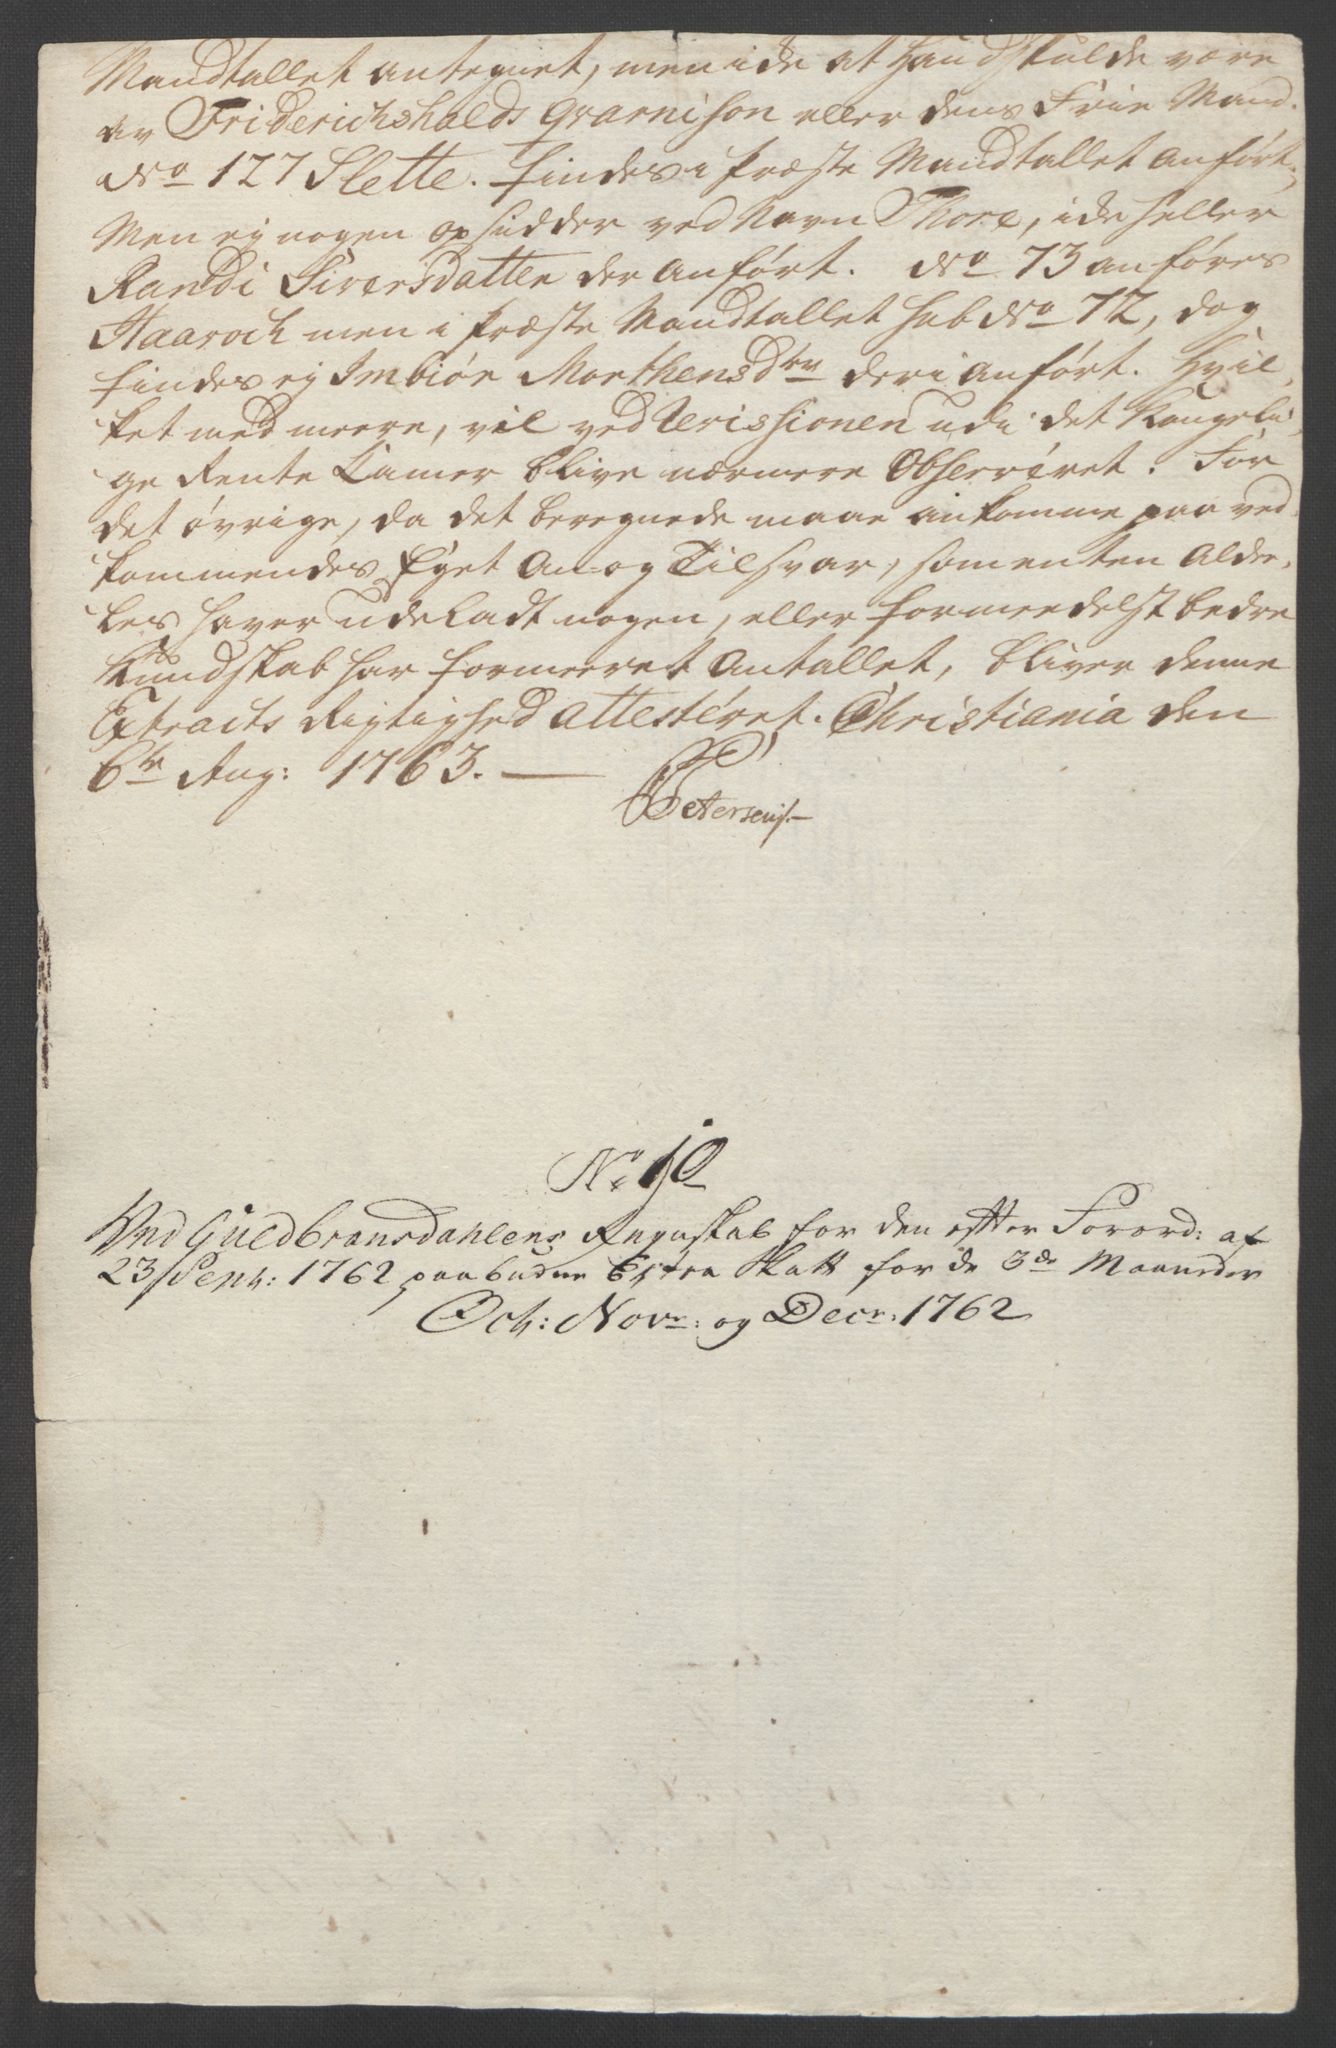 Mandtallet antegnet, men icke at hand skulde være
av Friderichshalds Gvarnison eller dens Frie Mand.
No 127 Slette. findes i Præste Mandtallet anført,
Men ej nogen opsidder ved Navn Thore, icke heller
Randi Siversdatter der anført. No 73 anføres
Haaroch men i Præste Mandtallet sub No 72, dog
findes ej Imbiør Morthensdtr deri anført. Hvil,
ket med meere, vil ved Revissionen udi det Kongeli,
ge Rente Camer blive nærmere Observeret. For
det øvrige, da det beregnede maae ankomme paa ved,
kommendes Eget An- og Tilsvar, som enten Alde,
les haver udeladt nogen, eller formeedelst bedre
Kundskab har formeeret Antallet, bliver denne
Extracts Rigtighed attesteret. Christiania den
6te Aug: 1763.
Petersen
No 10
Ved Guldbransdahlens Regnskab for den efter Forord: af
23 Septr: 1762 paabudne Extra Skatt for de 3de Maaneder
Octr: Novr: og Decr: 1762